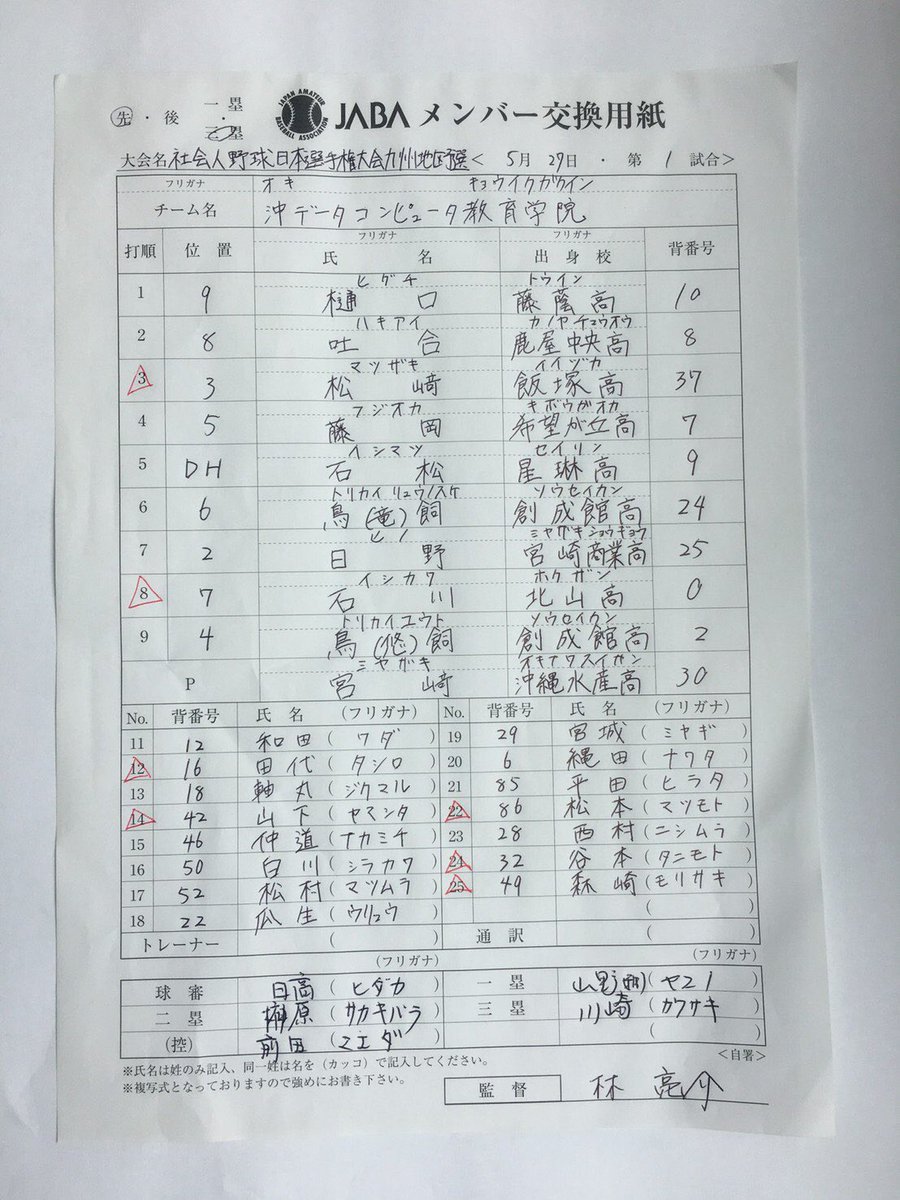 先・後 一塁・三塁 JAPAN AMATEUR BASEBALL ASSOCIATION JABA メンバー交換用紙
大会名 社会人野球日本選手権大会九州地区予選 < 5月29日・第1試合>
フリガナ オキ キョウイクガクイン
チーム名 沖データコンピュータ教育学院
フリガナ フリガナ
打順 位置 氏名 出身校 背番号
ヒグチ トウイン
1 9 樋口 藤蔭高 10
ハキアイ カノヤチュウオウ
2 8 吐合 鹿屋中央高 8
マツザキ イイヅカ
3 3 松﨑 飯塚高 37
フジオカ キボウガオカ
4 5 藤岡 希望が丘高 7
イシマツ セイリン
5 DH 石松 星琳高 9
トリカイリュウノスケ ソウセイカン
6 6 鳥(竜)飼 創成館高 24
ヒノ ミヤザキショウギョウ
7 2 日野 宮崎商業高 25
イシカワ ホクザン
8 7 石川 北山高 0
トリカイユウト ソウセイカン
9 4 鳥(悠)飼 創成館高 2
ミヤザキ オキナワスイサン
P 宮﨑 沖縄水産高 30
No. 背番号 氏名 (フリガナ) No. 背番号 氏名 (フリガナ)
11 12 和田(ワダ) 19 29 宮城(ミヤギ)
12 16 田代(タシロ) 20 6 縄田(ナワタ)
13 18 軸丸(ジクマル) 21 85 平田(ヒラタ)
14 42 山下(ヤマシタ) 22 86 松本(マツモト)
15 46 仲道(ナカミチ) 23 28 西村(ニシムラ)
16 50 白川(シラカワ) 24 32 谷本(タニモト)
17 52 松村(マツムラ) 25 49 森﨑(モリサキ)
18 22 瓜生(ウリュウ) ( )
トレーナー ( ) 通訳 ( )
(フリガナ) (フリガナ)
球審 日高(ヒダカ) 一塁 (ヤマノ)
二塁 榊原(サカキバラ) 三塁 川崎(カワサキ)
(控) 前田(マエダ) ( )
<自署>
※氏名は姓のみ記入、同一姓は名を(カッコ)で記入してください。
※複写式となっておりますので強めにお書き下さい。
監督 林 亮介